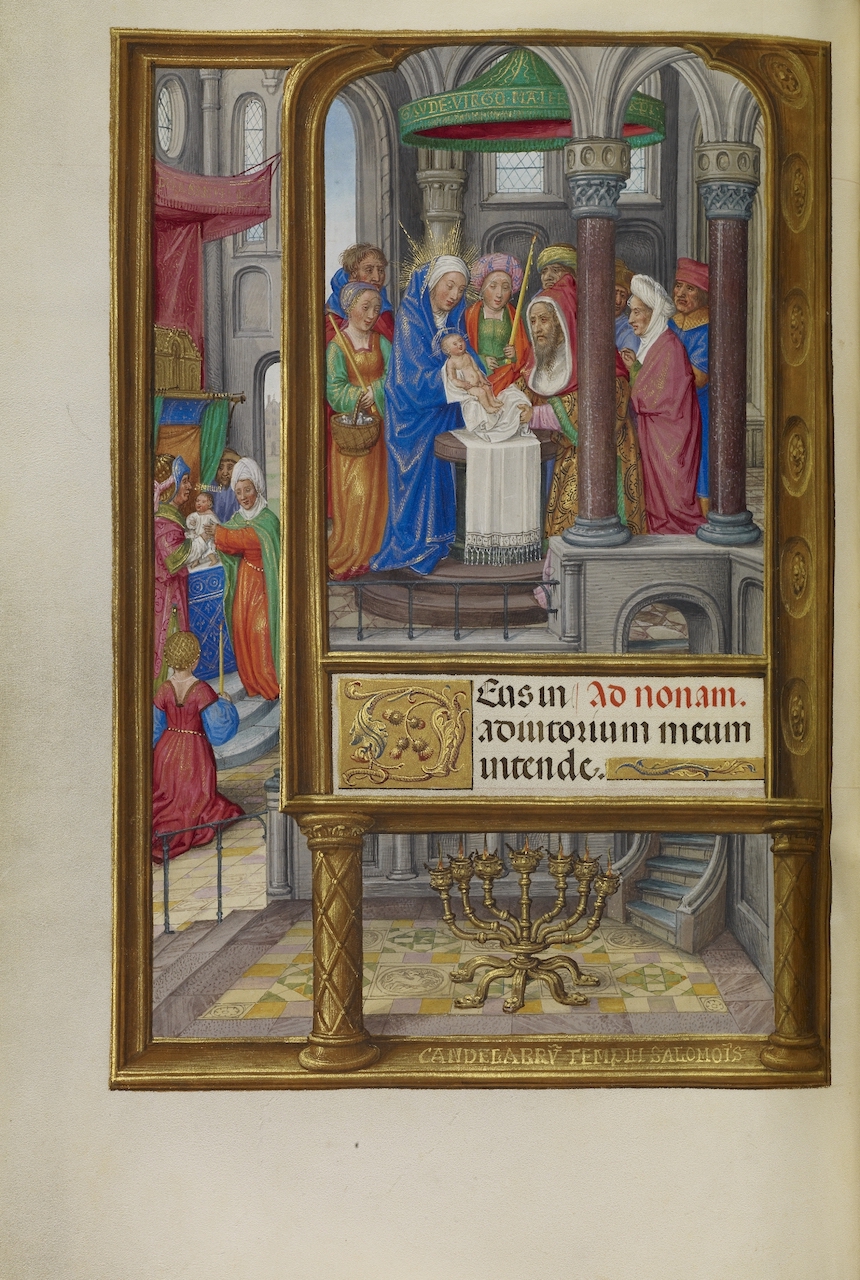 GAUDE·VIRGO·MATER
Samuel
Eus in Ad nonam.
adiutorium meum
intende.
CANDELABRV̄ TEMPLI SALOMOIS